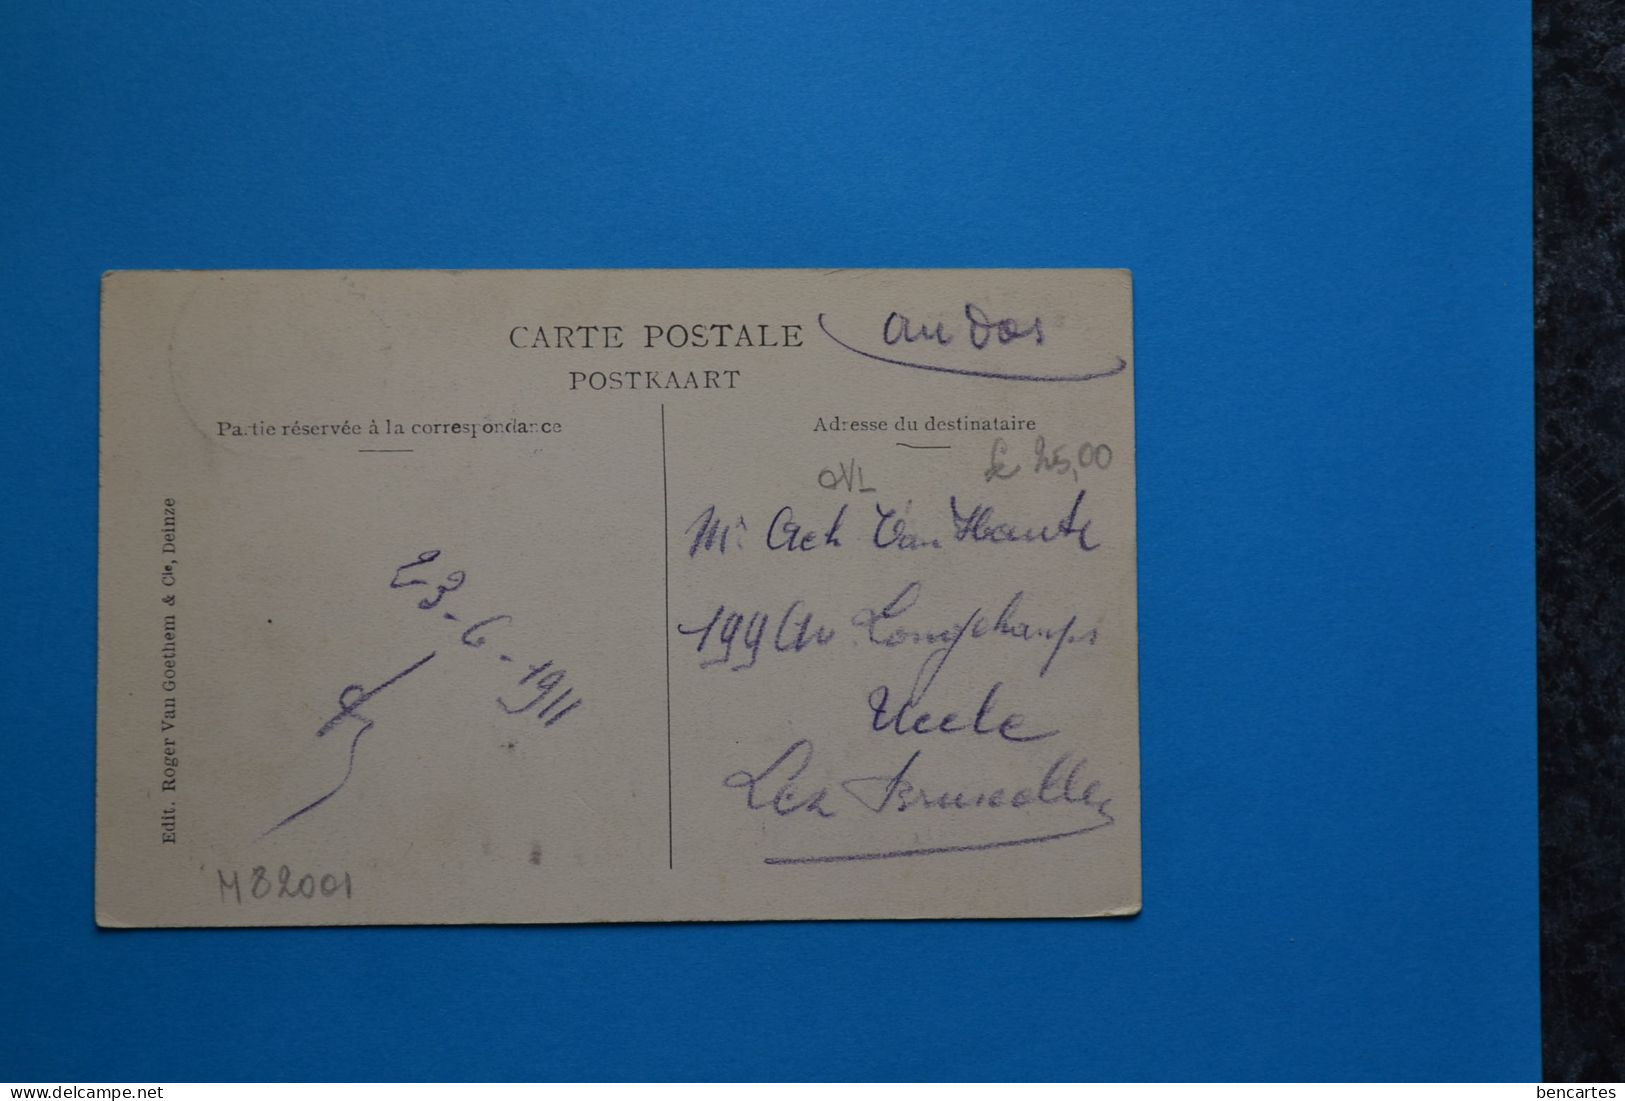 CARTE POSTALE
au Dos
POSTKAART
Partie réservée à la correspondance
Adresse du destinataire
25,00
Mr Ach Van Haute
199 Av Longchamps
Uccle
Lez Bruxelles
23-6-1911
Edit. Roger Van Goethem & Cie, Deinze
M82001
delcampe.net
bencartes